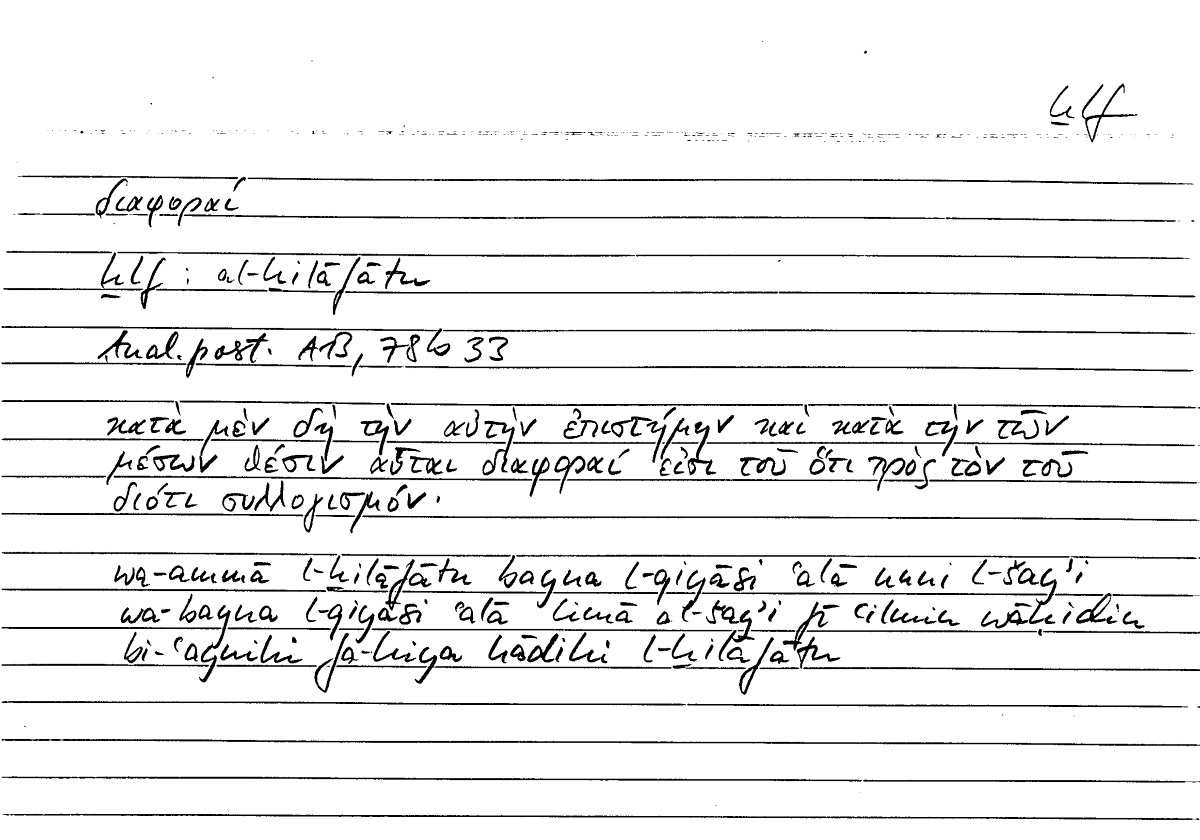 ḫlf
διαφοραί
ḫlf : al-ḫilāfātu
Anal. post. AB, 78b 33
κατὰ μὲν δὴ τὴν αὐτὴν ἐπιστήμην καὶ κατὰ τὴν τῶν
μέσων θέσιν αὗται διαφοραί εἰσι τοῦ ὅτι πρὸς τὸν τοῦ
διότι συλλογισμόν.
wa-ammā l-ḫilāfātu bayna l-qiyāsi ʿalā anni l-šayʾi
wa-bayna l-qiyāsi ʿalā limā al-šayʾi fī ʿilmin wāḥidin
bi-ʿaynihi fa-hiya hāḏihi l-ḫilāfātu